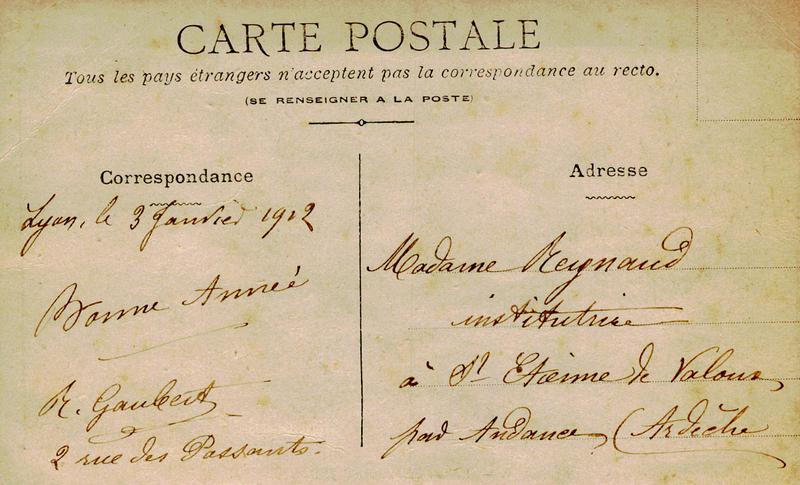 CARTE POSTALE
Tous les pays étrangers n'acceptent pas la correspondance au recto.
(SE RENSEIGNER A LA POSTE)
Correspondance
Adresse
Lyon, le 3 Janvier 1912
Bonne Année
R. Gaubert
2 rue des Passants.
Madame Reynaud
institutrice
à St Etienne de Valoux
par Andance (Ardèche